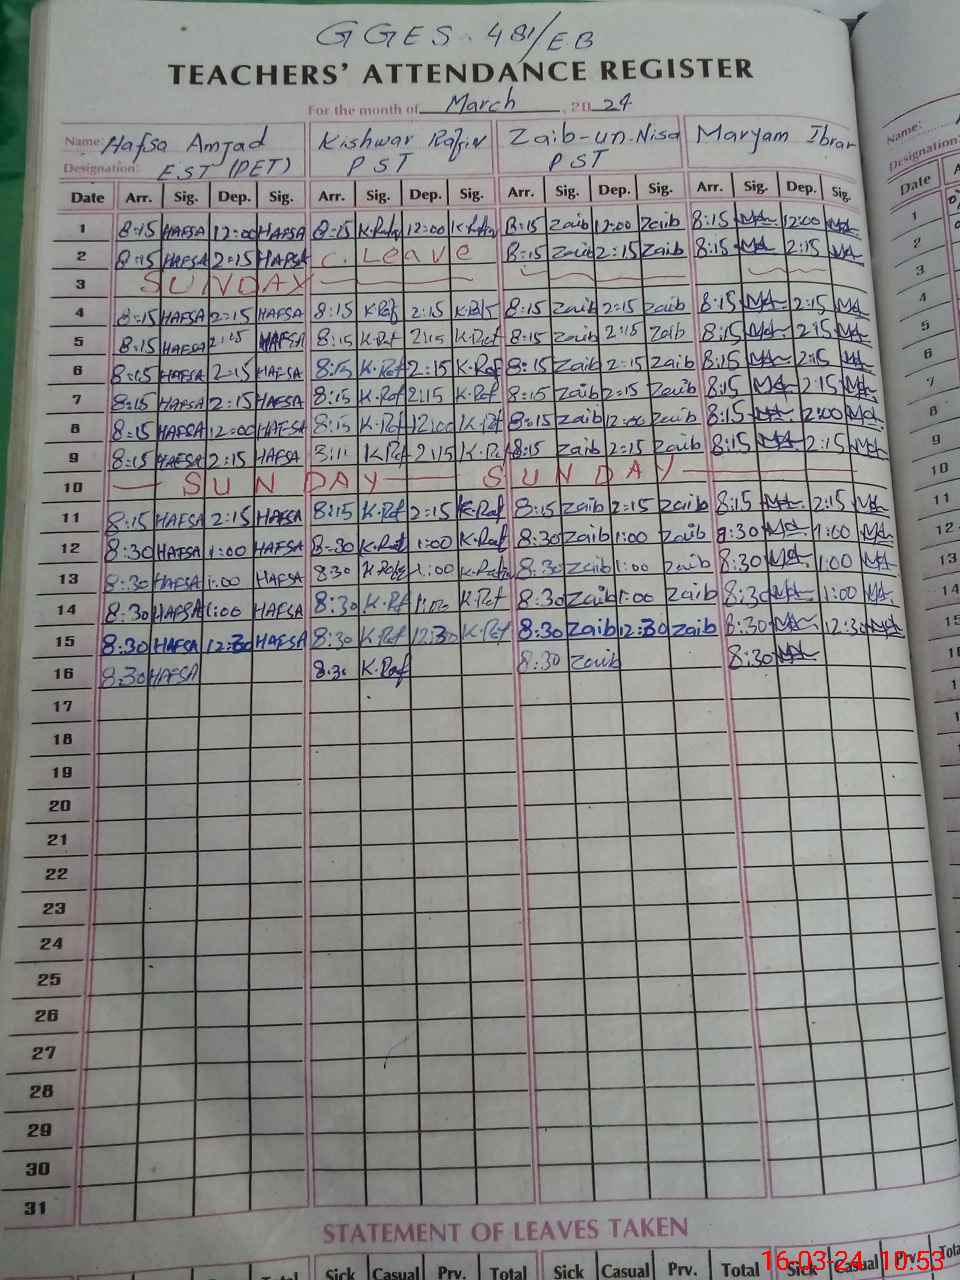 GGES. 481/EB
TEACHERS' ATTENDANCE REGISTER
For the month of March, 2024
Name: Hafsa Amjad Kishwar Rafiq Zaib-un-Nisa Maryam Ibrar Name:
Designation: EST (PET) PST PST Designation:
Date Arr. Sig. Dep. Sig. Arr. Sig. Dep. Sig. Arr. Sig. Dep. Sig. Arr. Sig. Dep. Sig. Date
1 8:15 HAFSA 12:00 HAFSA 8:15 12:00 8:15 Zaib 12:00 Zaib 8:15 12:00 1
2 8:15 HAFSA 2:15 HAFSA C. Leave 8:15 Zaib 2:15 Zaib 8:15 2:15 2
3 SUNDAY 3
4 8:15 HAFSA 2:15 HAFSA 8:15 K.Raf 2:15 K.Raf 8:15 Zaib 2:15 Zaib 8:15 2:15 4
5 8:15 HAFSA 2:15 HAFSA 8:15 K.Raf 2:15 K.Raf 8:15 Zaib 2:15 Zaib 8:15 2:15 5
6 8:15 HAFSA 2:15 HAFSA 8:15 K.Raf 2:15 K.Raf 8:15 Zaib 2:15 Zaib 8:15 2:15 6
7 8:15 HAFSA 2:15 HAFSA 8:15 K.Raf 2:15 K.Raf 8:15 Zaib 2:15 Zaib 8:15 2:15 7
8 8:15 HAFSA 12:00 HAFSA 8:15 K.Raf 12:00 K.Raf 8:15 Zaib 12:00 Zaib 8:15 12:00 8
9 8:15 HAFSA 2:15 HAFSA K.Raf 2:15 K.Raf 8:15 Zaib 2:15 Zaib 8:15 2:15 9
10 SUNDAY SUNDAY 10
11 8:15 HAFSA 2:15 HAFSA 8:15 K.Raf 2:15 K.Raf 8:15 Zaib 2:15 Zaib 8:15 2:15 11
12 8:30 HAFSA 1:00 HAFSA 8:30 K.Raf 1:00 K.Raf 8:30 Zaib 1:00 Zaib 8:30 1:00 12
13 8:30 HAFSA 1:00 HAFSA 8:30 1:00 8:30 Zaib 1:00 Zaib 8:30 1:00 13
14 8:30 HAFSA 1:00 HAFSA 8:30 K.Raf 1:00 K.Raf 8:30 Zaib 1:00 Zaib 8:30 1:00 14
15 8:30 HAFSA 12:30 HAFSA 8:30 K.Raf 12:30 K.Raf 8:30 Zaib 12:30 Zaib 8:30 12:30 15
16 8:30 HAFSA 8:30 K.Raf 8:30 Zaib 8:30
17
18
19
20
21
22
23
24
25
26
27
28
29
30
31
STATEMENT OF LEAVES TAKEN
Total Sick Casual Prv. Total Sick Casual Prv. Total Sick Casual Prv. Total
16-03-24 10:53